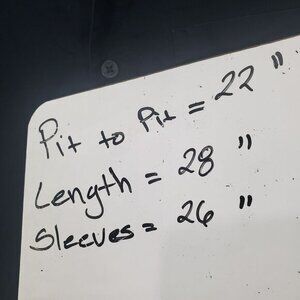 Pit to Pit = 22 "
Length = 28 "
Sleeves = 26 "